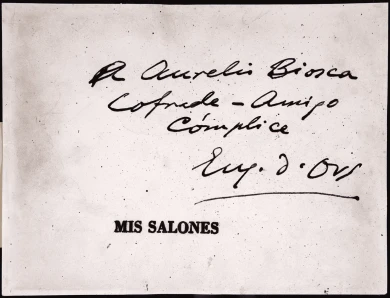 A Aurelio Biosca
Cofrade - Amigo
Cómplice
Eug. d'Ors
MIS SALONES